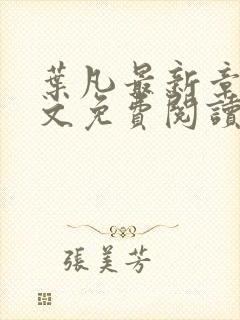 葉凡最新章
文免費閱讀
張美芳